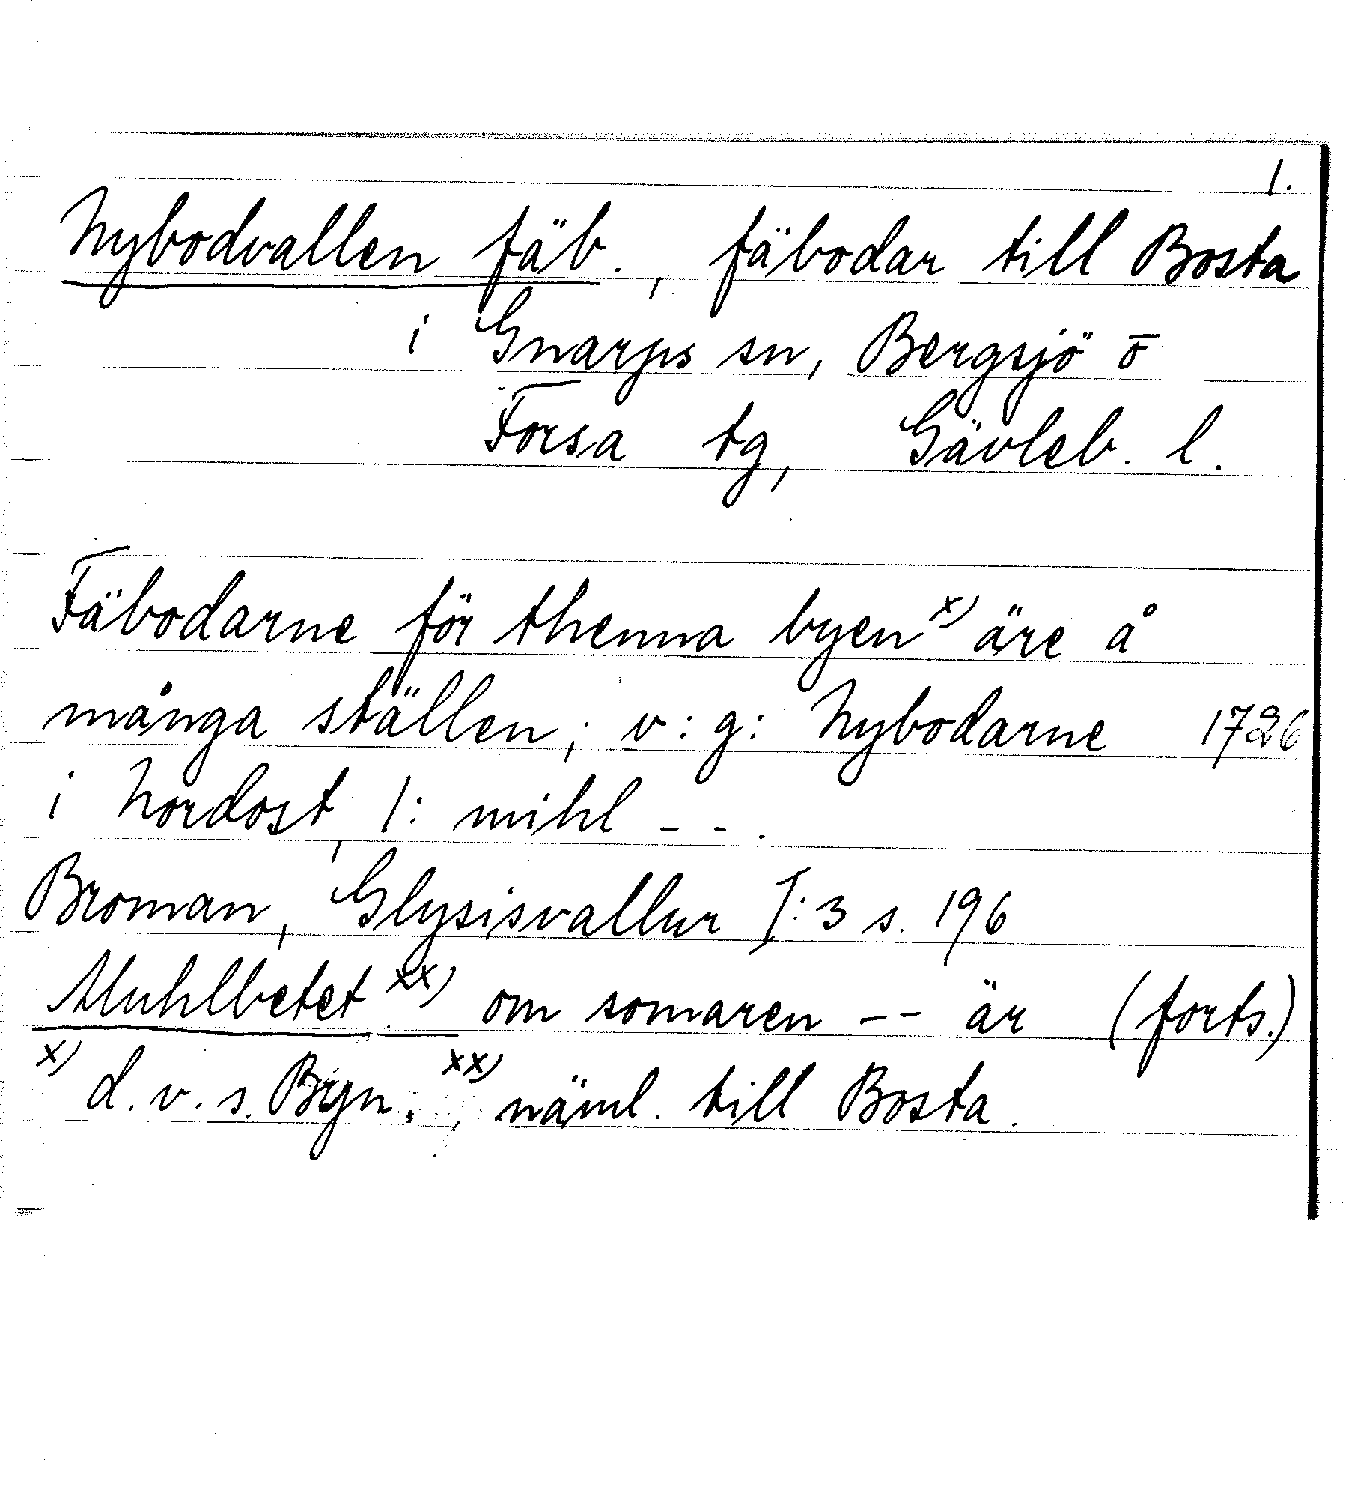 1.
Nybodvallen fäb., fäbodar till Bosta
i Gnarps sn, Bergsjö o
Forsa tg, Gävleb. l.
Fäbodarne för thenna byen x) äre å
många ställen; v:g: Nybodarne 1726
i Nordost, 1: mihl - - .
Broman, Glysisvallur I:3 s. 196
Muhlbetet xx) om somaren -- är (forts.)
x) d.v.s. Byn. xx) näml. till Bosta.